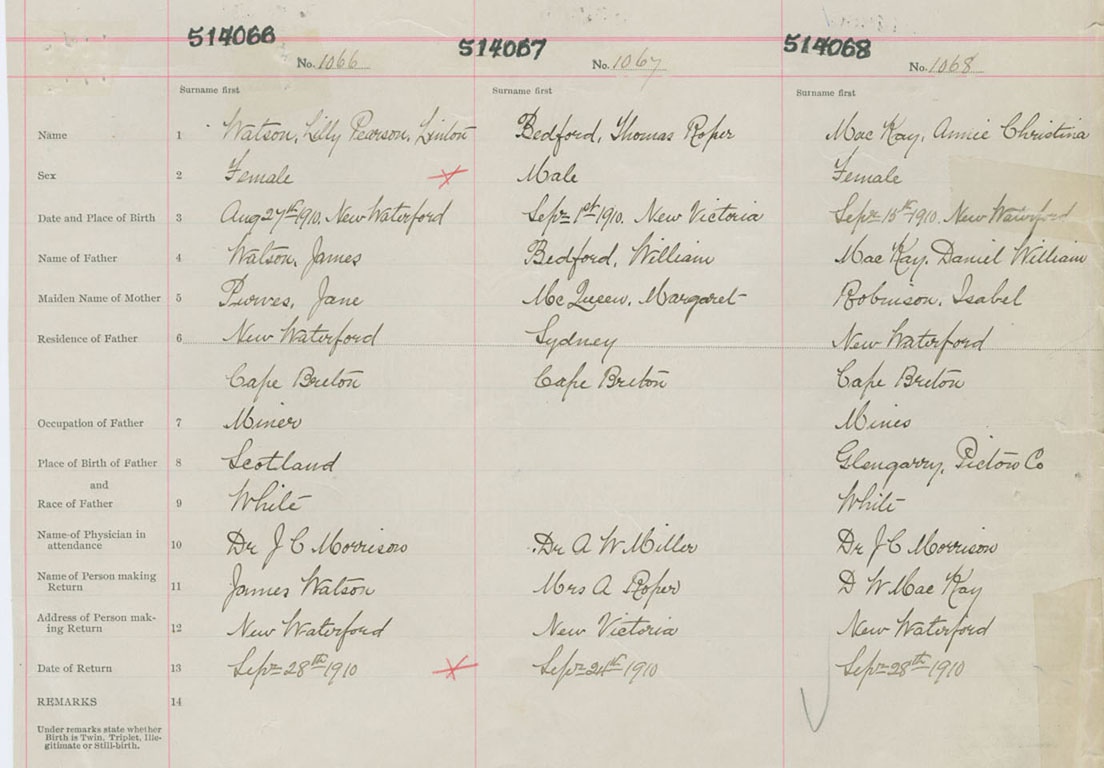 514066 514067 514068
No. 1066 No. 1067 No. 1068
Surname first Surname first Surname first
Name 1 Watson, Lilly Pearson, Linton Bedford, Thomas Roper Mac Kay, Annie Christina
Sex 2 Female Male Female
Date and Place of Birth 3 Aug 27th 1910. New Waterford Sepr 1st 1910. New Victoria Sepr 15th 1910. New Waterford
Name of Father 4 Watson, James Bedford, William Mac Kay. Daniel William
Maiden Name of Mother 5 Purves, Jane Mc Queen, Margaret Robinson, Isabel
Residence of Father 6 New Waterford Sydney New Waterford
Cape Breton Cape Breton Cape Breton
Occupation of Father 7 Miner Miner
Place of Birth of Father 8 Scotland Glengarry, Pictou Co
and
Race of Father 9 White White
Name of Physician in
attendance 10 Dr J C Morrison Dr A W Miller Dr J C Morrison
Name of Person making
Return 11 James Watson Mrs A Roper D W Mac Kay
Address of Person mak-
ing Return 12 New Waterford New Victoria New Waterford
Date of Return 13 Sepr 28th 1910 Sepr 24th 1910 Sepr 28th 1910
REMARKS 14
Under remarks state whether
Birth is Twin, Triplet, Ille-
gitimate or Still-birth.